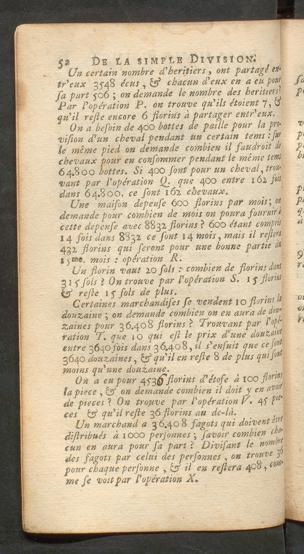 52 DE LA SIMPLE DIVISION.
Un certain nombre d'heritiers, ont partagé en-
tr'eux 3548 écus, & chacun d'eux en a eu pour
sa part 506; on demande le nombre des heritiers?
Par l'opération P. on trouve qu'ils étoient 7, &
qu'il reste encore 6 florins à partager entr'eux.
On a besoin de 400 bottes de paille pour la pro-
vision d'un cheval pendant un certain tems: sur
le même pied on demande combien il faudroit de
chevaux pour en consommer pendant le même tems
64.800 bottes. Si 400 sont pour un cheval, trou-
vant par l'opération Q. que 400 entre 162 fois
dans 64.800. ce sont 162 chevaux.
Une maison depense 600 florins par mois; on
demande pour combien de mois on poura fournir à
cette depense avec 8832 florins? 600 étant compris
14 fois dans 8832 ce sont 14 mois, mais il restera
432 florins qui seront pour une bonne partie du
15me. mois: opération R.
Un florin vaut 20 sols: combien de florins dans
315 sols? On trouve par l'opération S. 15 florins
& reste 15 sols de plus.
Certaines marchandises se vendent 10 florins la
douzaine; on demande combien on en aura de dou-
zaines pour 36.408 florins? Trouvant par l'opé-
ration T. que 10 qui est le prix d'une douzaine
entre 3640 fois dans 36.408, il s'ensuit que ce sont
3640 douzaines, & qu'il en reste 8 de plus qui sont
moins qu'une douzaine.
On a eu pour 4536 florins d'étofe à 100 florins
la piece, & on demande combien il doit y en avoir
de pieces? On trouve par l'opération V. 45 pie-
ces & qu'il reste 36 florins au de-là.
Un marchand a 36.408 fagots qui doivent être
distribués à 1000 personnes; savoir combien cha-
cun en aura pour sa part? Divisant le nombre
des fagots par celui des personnes, on trouve 36
pour chaque personne, & il en restera 408, com-
me se voit par l'opération X.